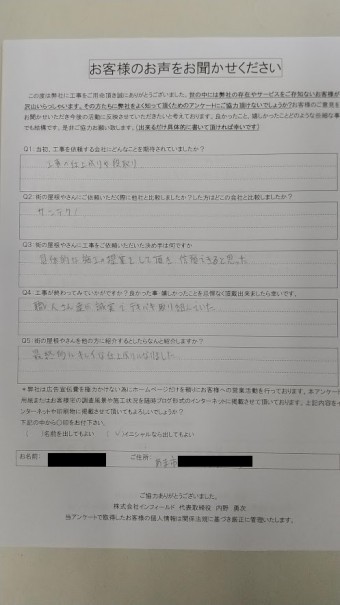 お客様のお声をお聞かせください
この度は弊社に工事をご用命頂き誠にありがとうございました。世の中には弊社の存在やサービスをご存知ないお客様が
沢山いらっしゃいます。その方たちに弊社をよく知って頂くためのアンケートにご協力頂けないでしょうか?お客様のご意見を
お聞かせいただき今後の活動に反映させていただきたいと考えております。良かったこと、嬉しかったことどのような些細な事
でも結構です。是非ご協力お願い致します。(出来るだけ具体的に書いて頂ければ幸いです)
Q1:当初、工事を依頼する会社にどんなことを期待されていましたか?
工事の仕上りと段取り
Q2:街の屋根やさんにご依頼いただく際に他社と比較しましたか?した方はどこの会社と比較しましたか?
Q3:街の屋根やさんに工事をご依頼いただいた決め手は何ですか
具体的な施工の提案をして頂き、信頼できると思った
Q4:工事が終わってみていかがですか?良かった事・嬉しかったことを忌憚なく記載出来ましたら幸いです。
職人さん達が誠実でテキパキ取り組んでいた
Q5:街の屋根やさんを他の方に紹介するとしたらなんと紹介しますか?
最終的にキレイな仕上りになりました
*弊社は広告宣伝費を極力かけない為にホームページだけを頼りにお客様への営業活動を行っております。本アンケート
用紙またはお客様宅の調査風景や施工状況を随時ブログ形式のインターネットに掲載させて頂いております。上記内容をイ
ンターネットや印刷物に掲載させて頂いてもよろしいでしょうか?
下記の中から〇印をお付下さい。
( )名前を出してもよい (✓)イニシャルなら出してもよい
お名前: ご住所:
ご協力ありがとうございました。
株式会社インフィールド 代表取締役 内野 勇次
当アンケートで取得したお客様の個人情報は関係法規に基づき厳正に管理いたします。